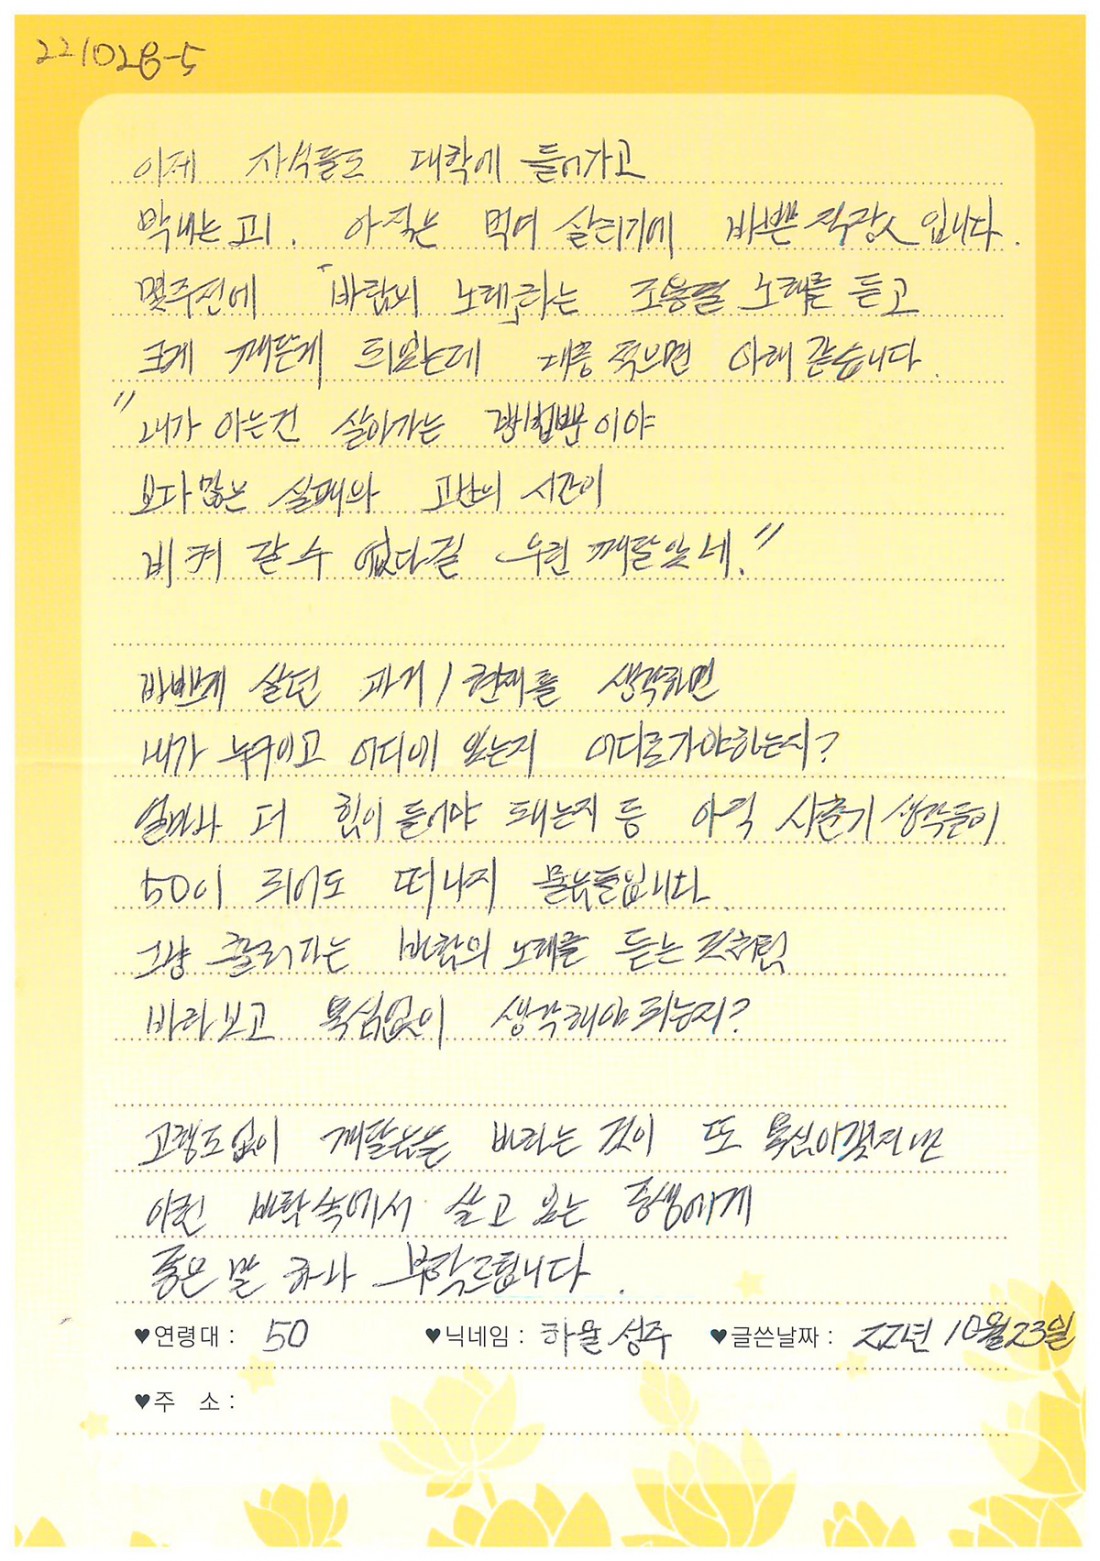 221028-5
이제 자식들도 대학에 들어가고
막내는 고1. 아직은 먹여 살리기에 바쁜 직장人입니다.
몇주전에 「바람의 노래」라는 조용필 노래를 듣고
크게 깨닫게 되었는데 대충 적으면 아래 같습니다.
"내가 아는건 살아가는 방법뿐이야
보다많은 실패와 고난의 시간이
비켜 갈 수 없다걸 우린 깨달았네."
바쁘게 살던 과거/현재를 생각하면
내가 누구이고 어디에 있는지 어디로가야하는지?
얼마나 더 힘이 들어야 돼는지 등 아직 사춘기 생각들이
50이 되어도 떠나지 물음들입니다.
그냥 흘러가는 바람의 노래를 듣는 것처럼
바라보고 욕심없이 생각해야 되는지?
고행도없이 깨달음을 바라는 것이 또 욕심이겠지만
이런 바람속에서 살고 있는 중생에게
좋은 말 하나 부탁드립니다.
♥연령대 : 50 ♥닉네임 : 하율성주 ♥글쓴날짜 : 22년 10월23일
♥주 소 :